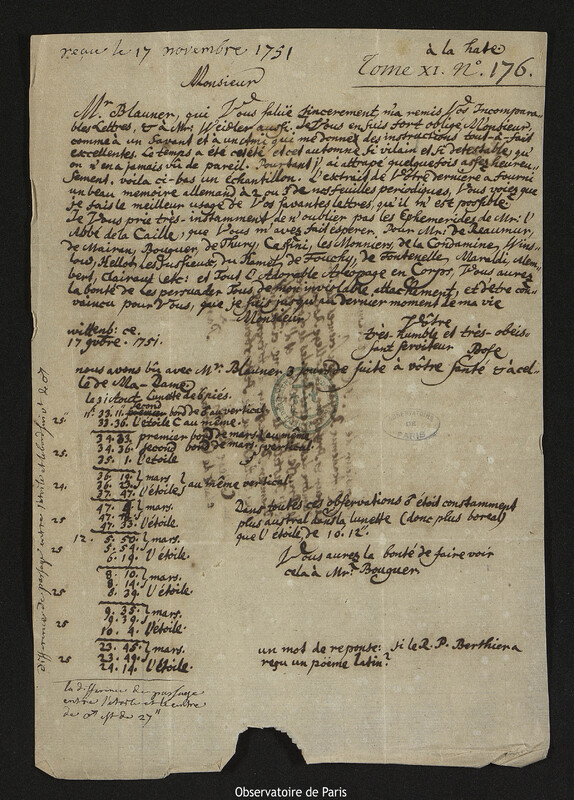 reçu le 17 novembre 1751
à la hate
Tome XI. N.° 176.
Monsieur
Mr. Blauner, qui Vous salüe sincerement m'a remis Vos Incompara-
bles Lettres, & à Mr. Weidler aussi. Je Vous en suis fort obligé Monsieur,
comme à un Savant et à un Ami qui me donne des instructions tout-à-fait
excellentes. Le temps a été cet été et cet automne si vilain et si detestable, qu'
on n'en a jamais vû de pareil. Pourtant j'ai attrapé quelquefois assez heureu-
sement. voila ci-bas un échantillon. L'estrait de Vôtre derniere a fourni
un beau memoire allemand à 2 ou 3 de nos feuilles periodiques, Vous voiez que
je fais le meilleur usage de Vos savantes lettres, qu'il m'est possible.
Je Vous prie très-instamment de n'oublier pas les Ephemerides de Mr. l'
Abbé de la Caille, que Vous m'avez fait esperer. Pour Mr. de Reaumur,
de Mairan, Bouguer, de Thury, Cassini, les Monniers, de la Condamine, Wins-
low, Hellot, les Jussieux, du Hamel, de Fouchy, de Fontenelle, Maraldi, Alem-
bert, Clairaut etc: et Tout L'Adorable Areopage en Corps, Vous aurez
la bonté de les persuader Tous de mon inviolable attachement, et d'etre con-
vaincu pour Vous, que je suis jusqu'au dernier moment de ma vie
Monsieur
Vôtre
wittenb: ce.
17 9vbre. 1751.
très-humble et très-obeis-
sant serviteur Bose
nous avons bû avec Mr. Blauner 3 jours de suite à vôtre santé & à cel-
le de Ma-Dame.
le 31 Aout Lunette de 6 piés.
second
25" 11. 33. 11. bord de ♂ au vertical
33. 36. l'étoile C au même.
34. 33. premier bord de mars au même
25. 34. 36. second bord de mars vertical
35. 1. l'etoile
24. 37. 47. l'étoile au même vertical.
47. mars.
25. 47. 33. l'étoile.
12. 5. 50. mars.
25 5. 54.
6. 19. l'étoile.
8. 10. mars.
8. 14.
25 8. 39. l'étoile.
9. 35. mars.
9. 39.
25 10. 4. l'étoile.
23. 45. mars.
23. 49.
25 24. 14. l'étoile.
Dans toutes ces observations ♂ étoit constamment
plus austral dans la lunette (donc plus boreal)
que l'étoile de 10. 12."
Vous aurez la bonté de faire voir
cela à Mr. Bouguer.
un mot de reponse: si le R. P. Berthier a
reçu un poëme latin?
difference de passage entre l'étoile et le bord suivt de ♂
la difference de passage
entre l'étoile et le centre
de ♂ est de 27"
OBSERVATOIRE
DE
PARIS
Observatoire de Paris